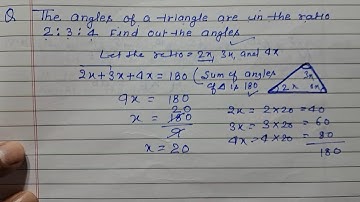 Q The angles of a triangle are in the ratio
2:3:4 Find out the angles
Let the ratio = 2x, 3x, and 4x
2x + 3x + 4x = 180 (Sum of angles of Δ is 180
3x
2x 4x
9x = 180
x = 180 20
9
x = 20
2x = 2×20 = 40
3x = 3×20 = 60
4x = 4×20 = 80
180